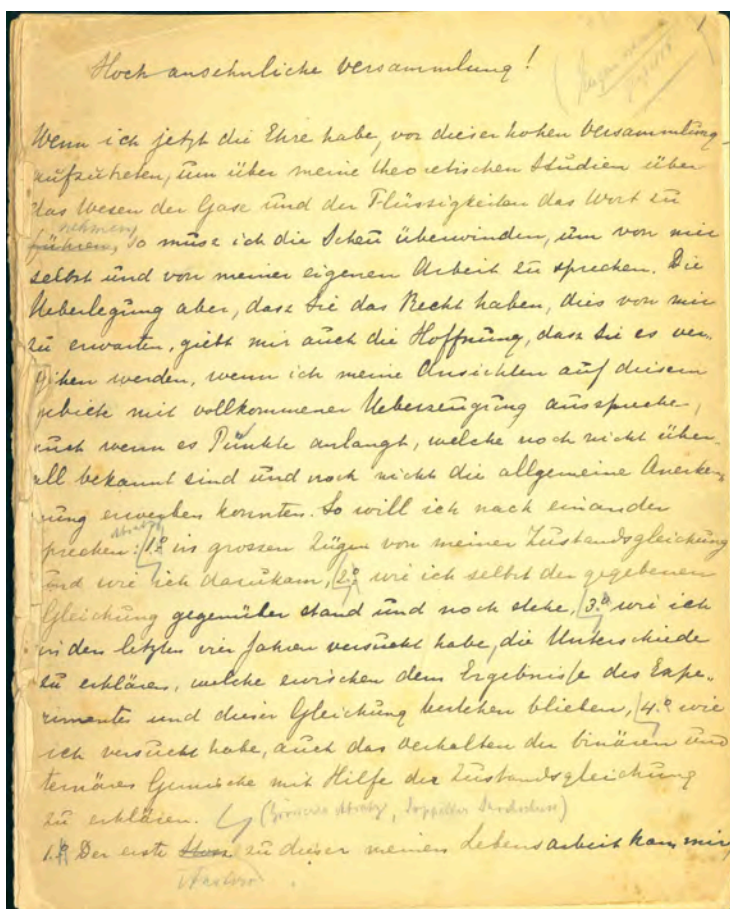 1
Hoch ansehnliche Versammlung!
Wenn ich jetzt die Ehre habe, vor dieser hohen Versammlung
aufzutreten, um über meine theoretischen Studien über
das Wesen der Gase und der Flüssigkeiten das Wort zu
nehmen
führen, so muss ich die Scheu überwinden, um von mir
selbst und von meiner eigenen Arbeit zu sprechen. Die
Ueberlegung aber, dasz Sie das Recht haben, dies von mir
zu erwarten, giebt mir auch die Hoffnung, dasz Sie es ver-
zeihen werden, wenn ich meine Ansichten auf diesem
gebiete mit vollkommener Ueberzeugung ausspreche,
auch wenn es Punkte anlangt, welche noch nicht über-
all bekannt sind und noch nicht die allgemeine Anerken-
nung erwerben konnten. So will ich nach einander
Absatz
sprechen: 1.o in grossen Zügen von meiner Zustandsgleichung
und wie ich dazukam, 2.o wie ich selbst der gegebenen
Gleichung gegenüber stand und noch stehe, 3.o wie ich
in den letzten vier Jahren versucht habe, die Unterschiede
zu erklären, welche zwischen dem Ergebnisse des Expe-
rimentes und dieser Gleichung bestehen blieben, 4.o wie
ich versucht habe, auch das Verhalten der binären und
ternären Gemische mit Hilfe der Zustandsgleichung
zu erklären.
1.o Der erste zu dieser meinen Lebensarbeit kam mir,